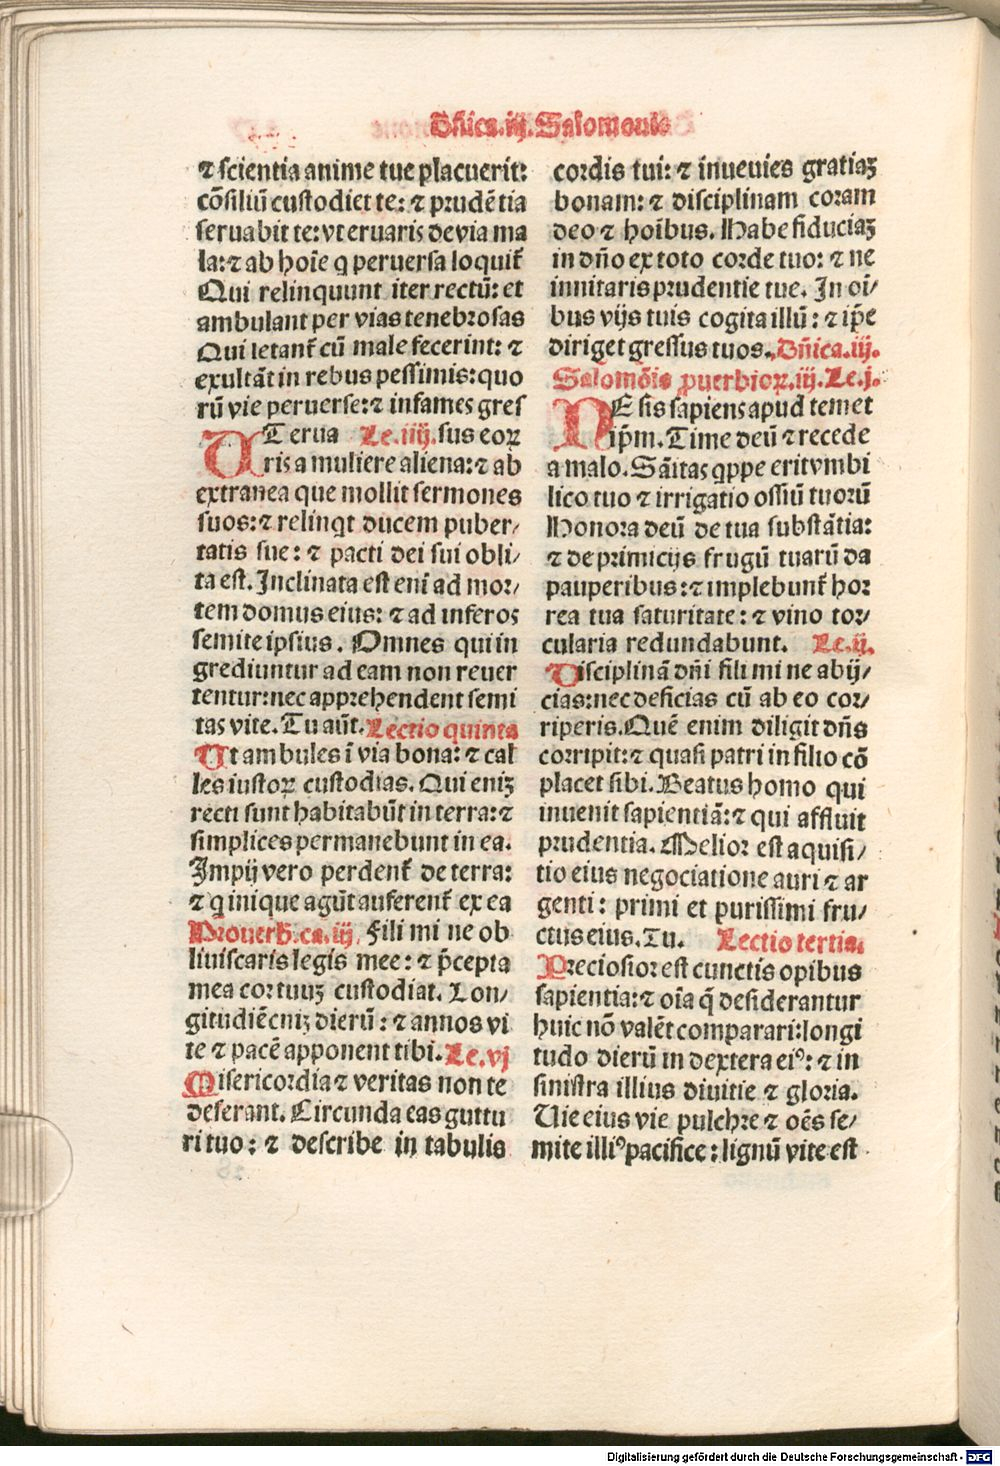 Dñica.iij.Salomonis
⁊ scientia anime tue placuerit:
cõsiliũ custodiet te: ⁊ prudẽtia
seruabit te: vt eruaris de via ma
la: ⁊ ab hoĩe q peruersa loquit̃
Qui relinquunt iter rectũ: et
ambulant per vias tenebrosas
Qui letant̃ cũ male fecerint: ⁊
exultãt in rebus pessimis: quo
rũ vie peruerse: ⁊ infames gres
Terua Le.iiij. sus eoꝝ
Vris a muliere aliena: ⁊ ab
extranea que mollit sermones
suos: ⁊ relinqt ducem puber/
tatis sue: ⁊ pacti dei sui obli/
ta est. Inclinata est eni̇̃ ad mor/
tem domus eius: ⁊ ad inferos
semite ipsius. Omnes qui in
grediuntur ad eam non reuer
tentur: nec apprehendent semi
tas vite. Tu aũt. Lectio quinta
Ut ambules ĩ via bona: ⁊ cal
les iustoꝝ custodias. Qui eniꝫ
recti sunt habitabũt in terra: ⁊
simplices permanebunt in ea.
Impij vero perdent̃ de terra:
⁊ q inique agũt auferent̃ ex ea
Prouerb̃.ca.iij. Fili mi ne ob
liuiscaris legis mee: ⁊ p̃cepta
mea cor tuuꝫ custodiat. Lon/
gitudiẽ eniꝫ dierũ: ⁊ annos vi
te ⁊ pacẽ apponent tibi. Le.vj
Misericordia ⁊ veritas non te
deserant. Circunda eas guttu
ri tuo: ⁊ describe in tabulis
cordis tui: ⁊ inuenies gratiaꝫ
bonam: ⁊ disciplinam coram
deo ⁊ hoĩbus. Habe fiduciaꝫ
in dño ex toto corde tuo: ⁊ ne
innitaris prudentie tue. In oĩ/
bus vijs tuis cogita illũ: ⁊ ip̃e
diriget gressus tuos. Dñica.iij.
Salomõis ꝓuerbioꝝ.iij. Le.j.
NE sis sapiens apud temet
ip̃m. Time deũ ⁊ recede
a malo. Sãitas qppe erit vmbi
lico tuo ⁊ irrigatio ossiũ tuorũ
Honora deũ de tua substãtia:
⁊ de primicijs frugũ tuarũ da
pauperibus: ⁊ implebunt̃ hor
rea tua saturitate: ⁊ vino tor/
cularia redundabunt. Le.ij.
Disciplinã dñi fili mi ne abij/
cias: nec deficias cũ ab eo cor/
riperis. Quẽ enim diligit dñs
corripit: ⁊ quasi patri in filio cõ
placet sibi. Beatus homo qui
inuenit sapientiã: ⁊ qui affluit
prudentia. Melior est aquisi/
tio eius negociatione auri ⁊ ar
genti: primi et purissimi fru/
ctus eius. Tu. Lectio tertia.
Preciosior est cunctis opibus
sapientia: ⁊ oĩa q̃ desiderantur
huic nõ valẽt comparari: longi
tudo dierũ in dextera eiꝰ: ⁊ in
sinistra illius diuitie ⁊ gloria.
Uie eius vie pulchre ⁊ oẽs se/
mite illiꝰ pacifice: lignũ vite est
Digitalisierung gefördert durch die Deutsche Forschungsgemeinschaft - DFG